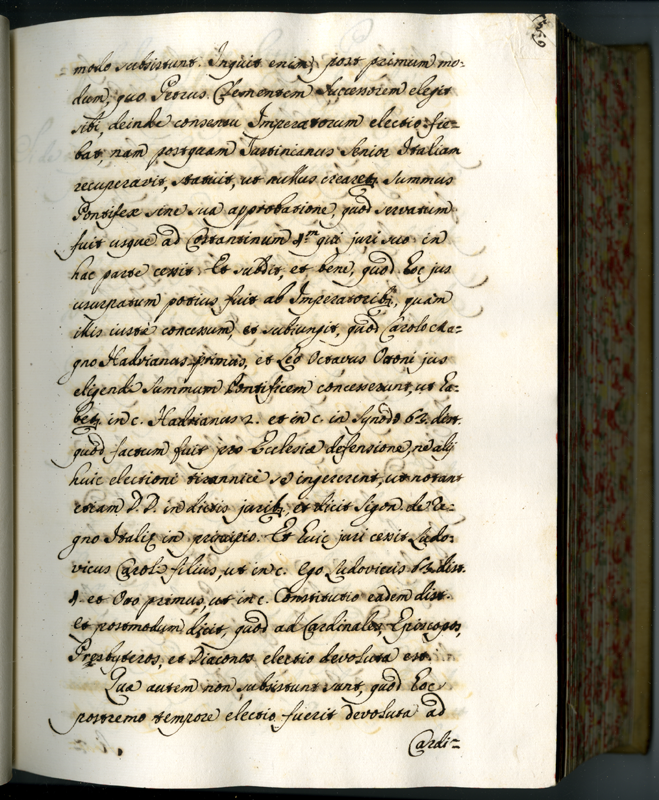 modo subsistunt. Inquit enim, post primum mo-
dum, quo Petrus Clementem successorem elegit
sibi, deinde consensu Imperatorum electio fie-
bat, nam postquam Justinianus Senior Italiam
recuperavit, statuit, ut nullus crearetr Summus
Pontifex sine sua approbatione, quod servatum
fuit usque ad Costantinum 4.m qui juri suo in
hac parte cessit. Et subdit, et bene, quod hoc jus
usurpatum potius fuit ab Imperatorib; quam
illis iuste concessum, et subiungit, quod Carolo Ma-
gno Hadrianus primus, et Leo Octavus Ottoni jus
eligendi Summum Pontificem concesserunt, ut ha-
betr in c. Hadrianus 2. et in c. in Synodo 63. dist.
quod factum fuit pro Ecclesiæ defensione, ne alij
huic electioni tirannicè se ingererent, ut notant
etiam D.D. in dictis jurib; et dicit Sigon. de Re-
gno Italiæ in principio. Et huic juri cessit Ludo-
vicus Caroli filius, ut in c. Ego Ludovicus 63. dist.
et Oto primus, ut in c. Constitutio eadem dist.
et postmodum dicit, quod ad Cardinales, Episcopos,
Presbyteros, et Diaconos electio devoluta est.
Qua autem non subsistunt sunt, quod hoc
postremo tempore electio fuerit devoluta ad
Cardi-